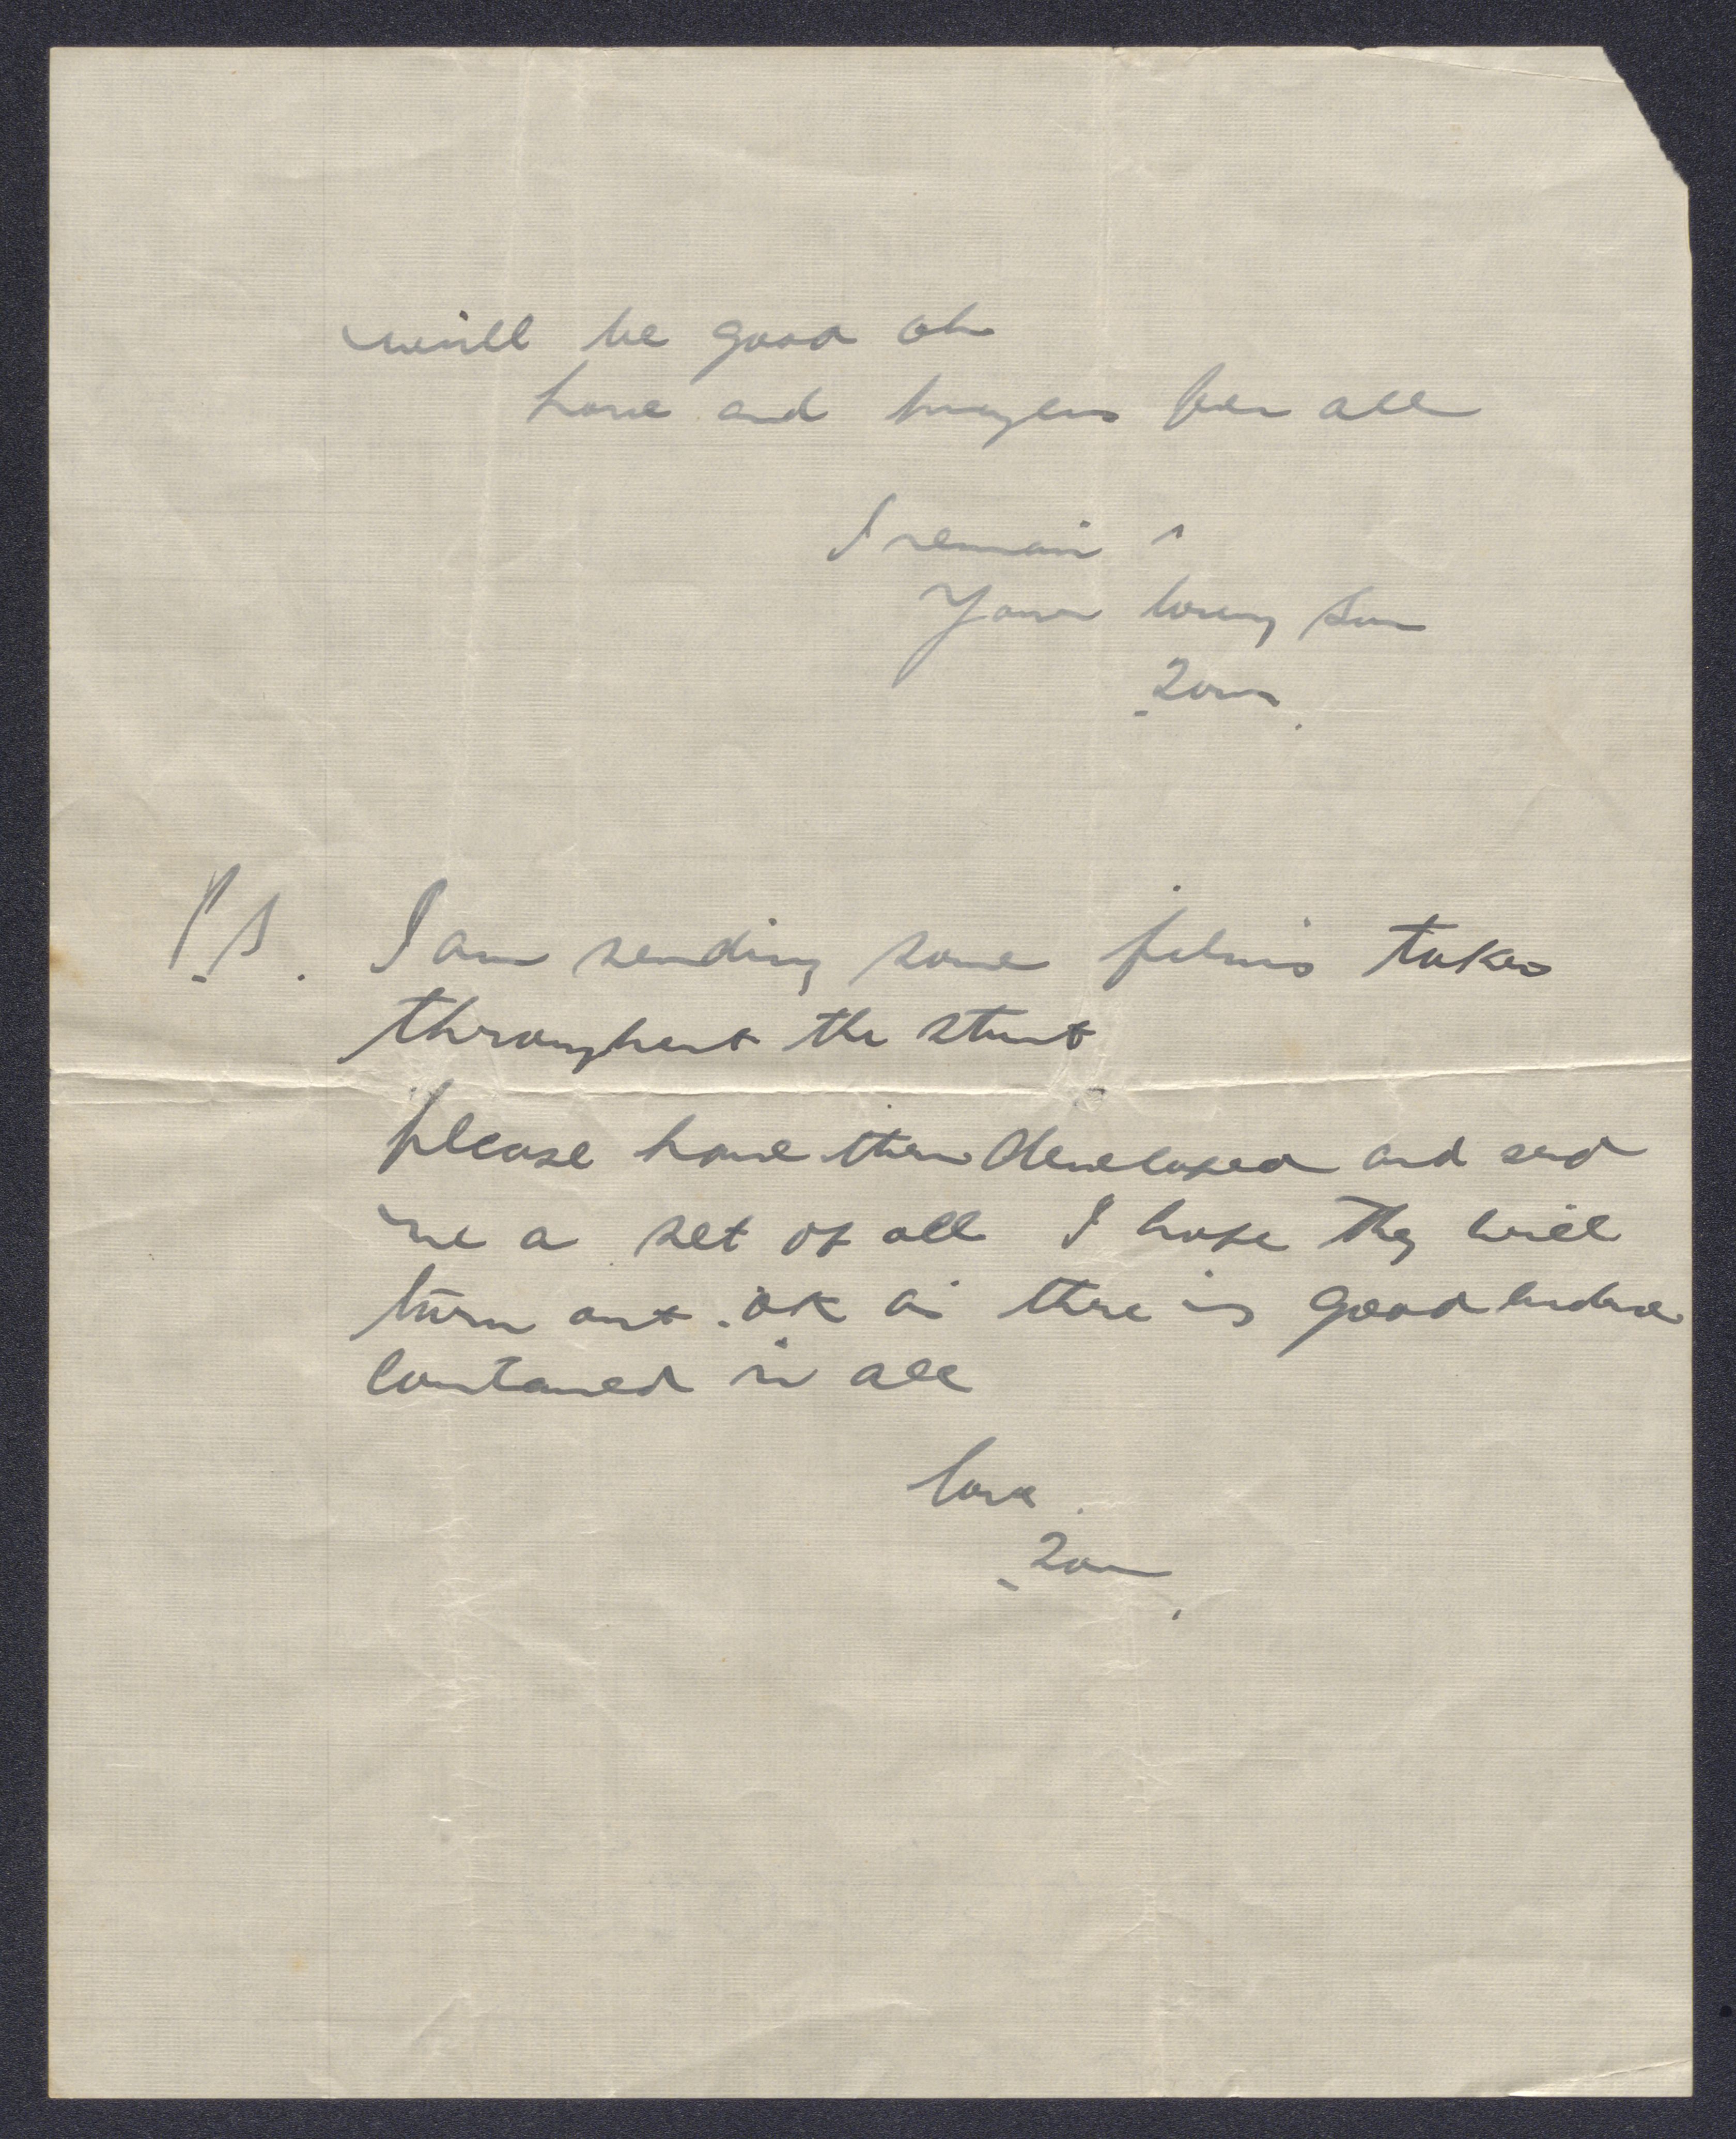 will be good oh
love and prayers for all
I remain
Your loving Son
Tom.
P.S. I am sending some films taken
throughout the stunt
please have them developed and send
me a set of all I hope they will
turn out ok as there is good
contained in all
love
Tom